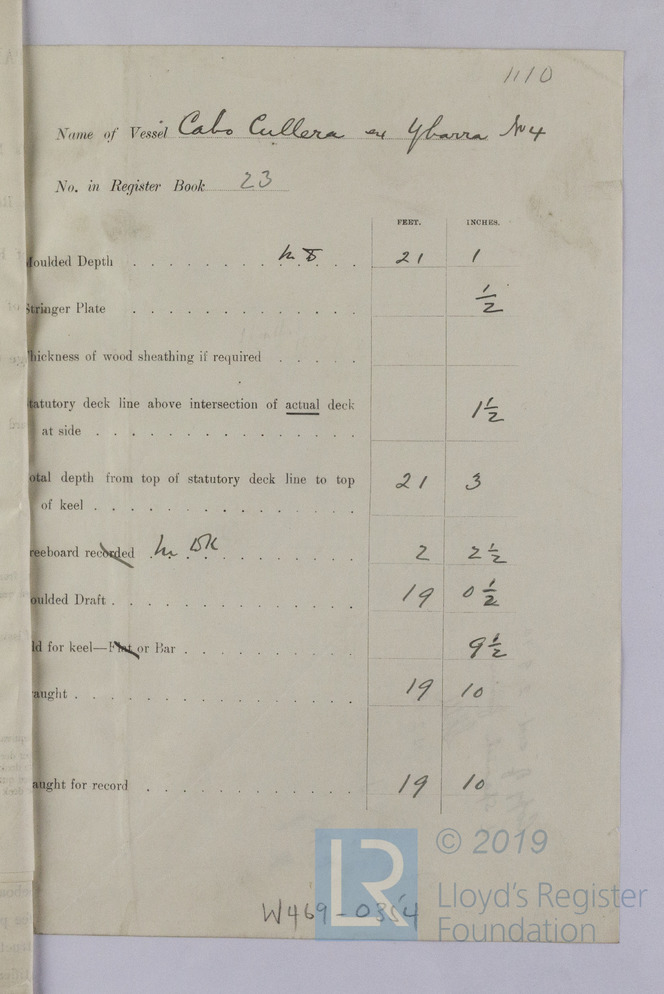 1110
Name of Vessel Cabo Cullera ex Ybarra No 4
No. in Register Book 23
FEET. INCHES.
Moulded Depth . . . . . . . . . . . . 21 1
Stringer Plate . . . . . . . . . . . . 1/2
hickness of wood sheathing if required . . . . .
tatutory deck line above intersection of actual deck
at side . . . . . . . . . . . . 1 1/2
otal depth from top of statutory deck line to top
of keel . . . . . . . . . . . . 21 3
reeboard recorded . . . . . . . . . . . 2 2 1/2
oulded Draft . . . . . . . . . . . . 19 0 1/2
ld for keel—Flat or Bar . . . . . . . . . 9 1/2
aught . . . . . . . . . . . . 19 10
aught for record . . . . . . . . . . . 19 10
© 2019
LR
Lloyd's Register
Foundation
W469-0354